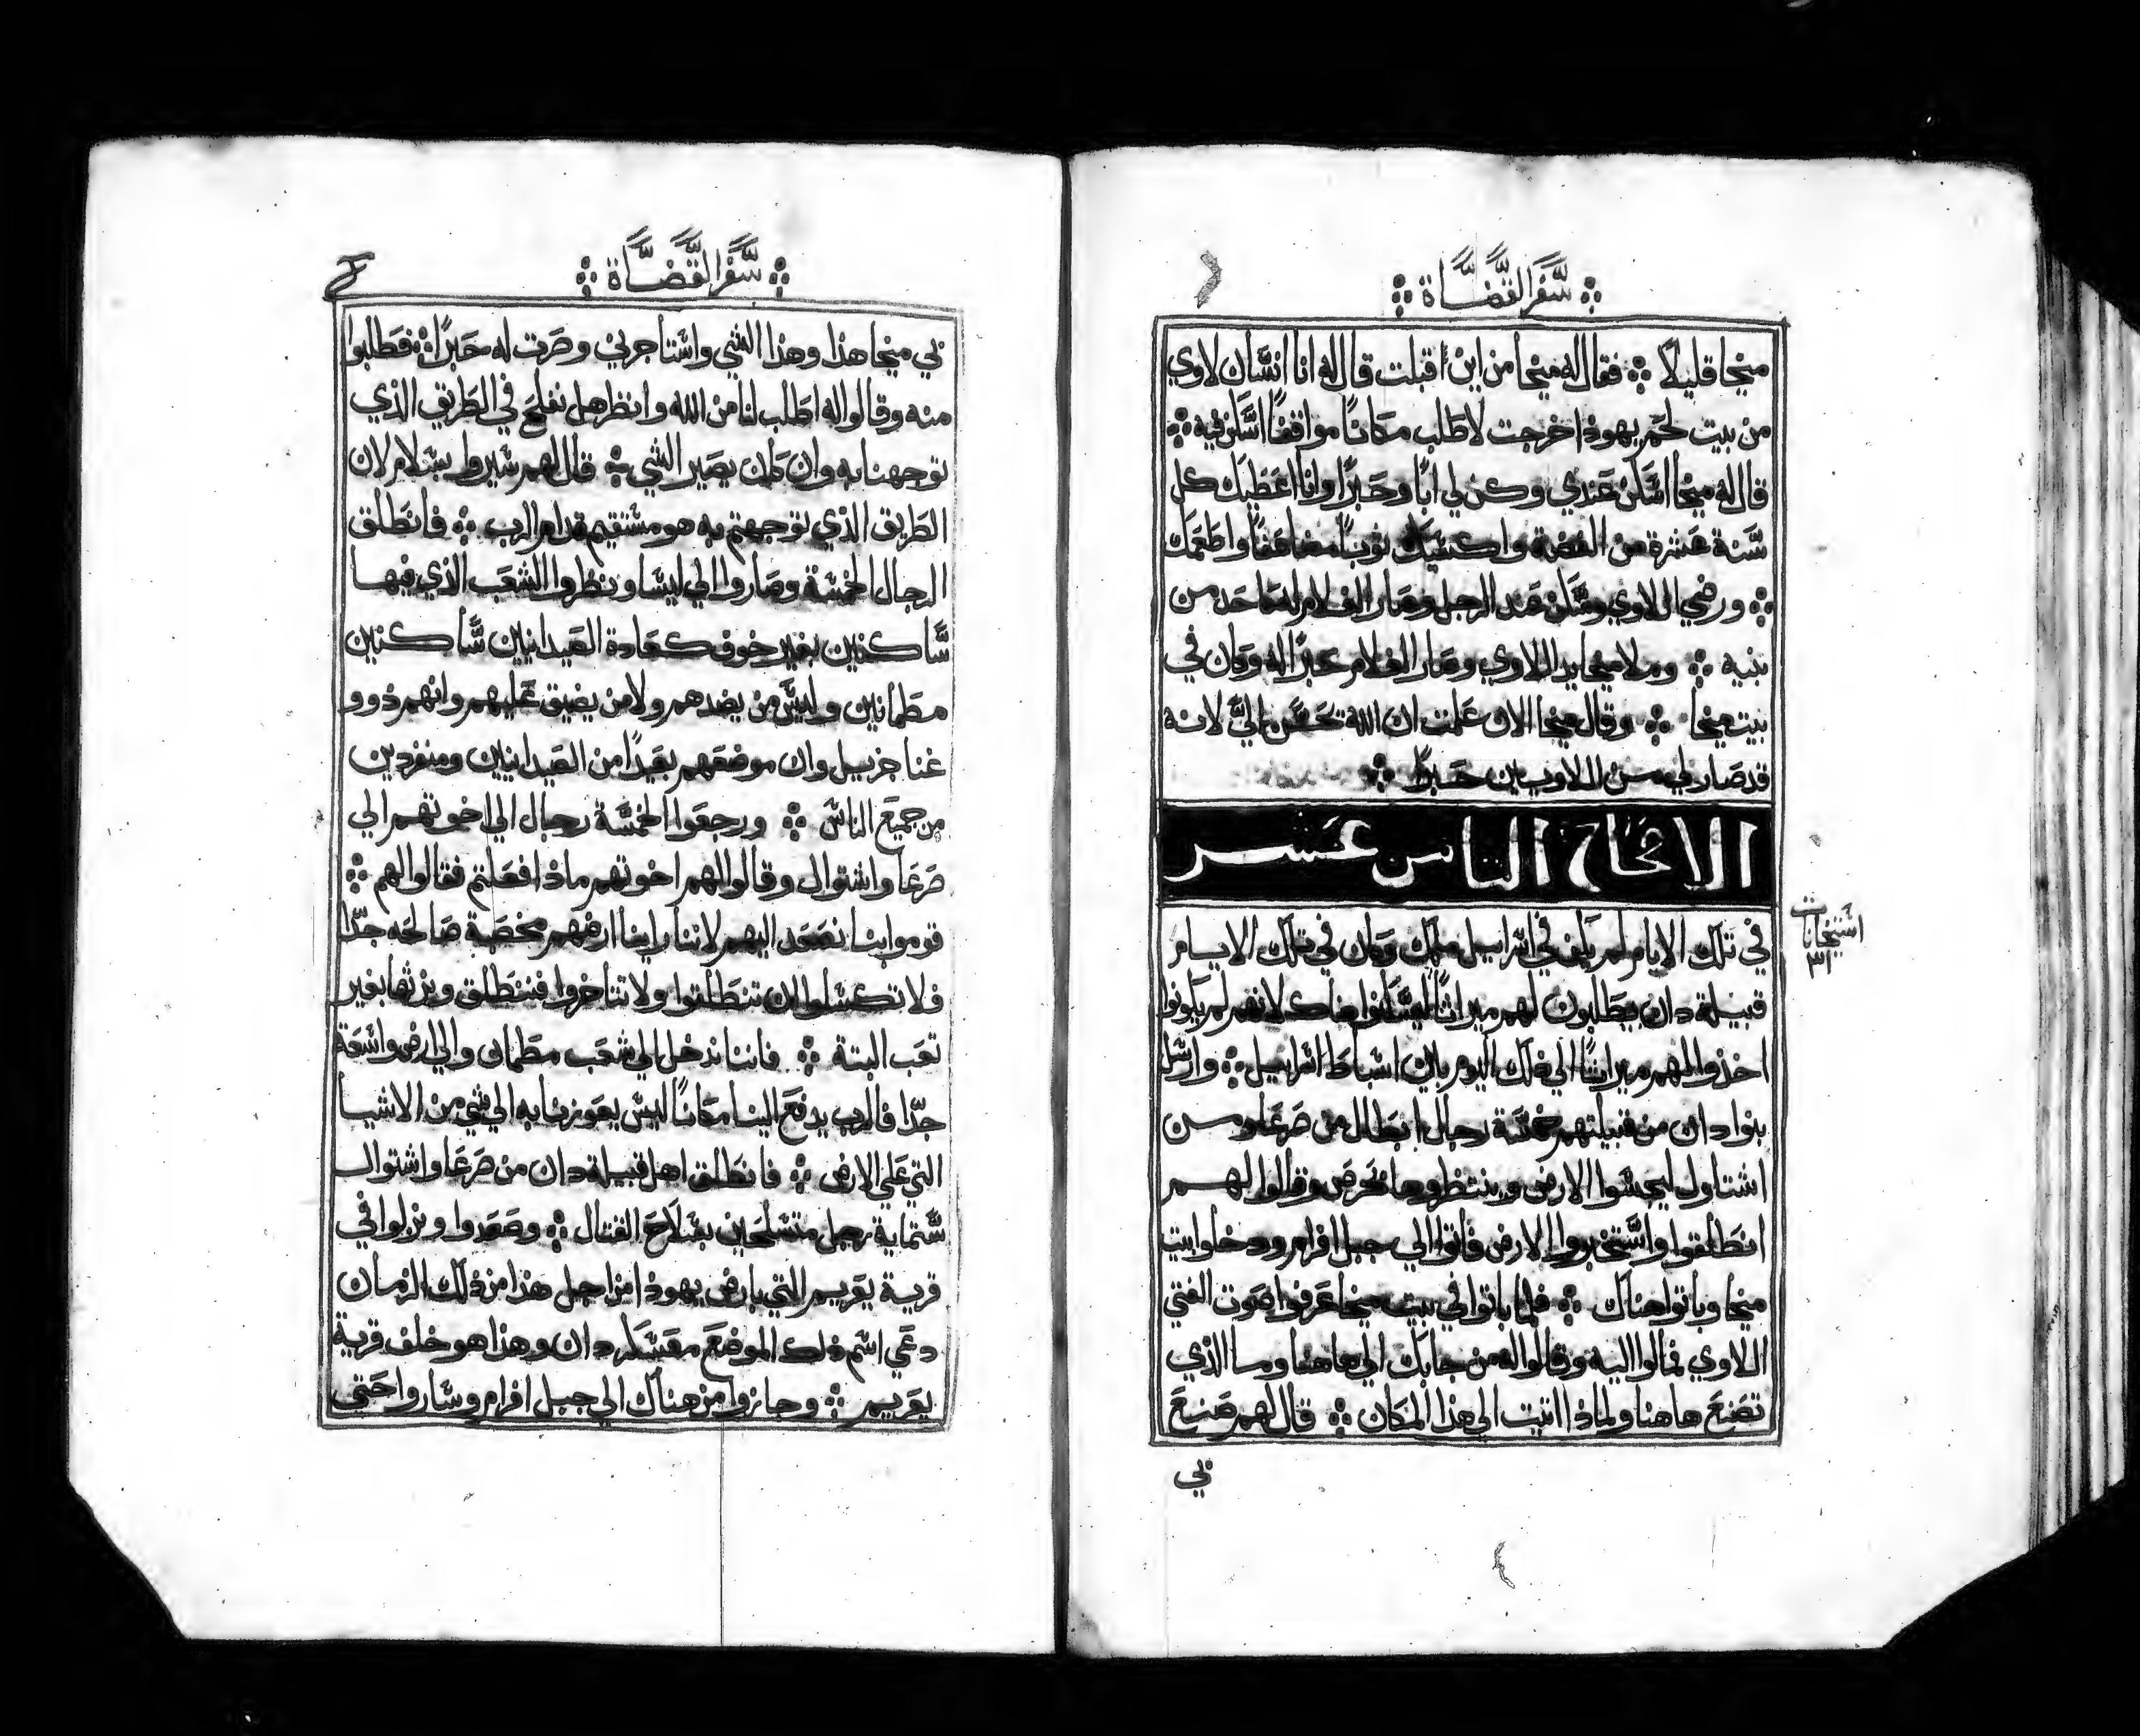 سفر القضاة
منخا قليلاً ⁘ فقال له منخا من اين اقبلت قال له انا انسان لاوي
من بيت لحم يهودا خرجت لاطلب مكاناً موافقاً اسكن فيه ⁘
قال له منخا اسكن عندي وكن لي اباً وحبراً وانا اعطيك كل
سنة عشرة من الفضة واكسيك ثوباً مضاعفاً واطعمك
⁘ ورضي اللاوي وسكن عند الرجل وصار الغلام له كاحد من
بنيه ⁘ وملا منخا يد اللاوي وصار الغلام حبراً له وكان في
بيت منخا ⁘ وقال منخا الان علمت ان الله تحسن اليّ لانه
قد صار لي من اللاويين حبراً ⁘
الاصحاح الثامن عشر
في تلك الايام لم يكن في اسراييل ملك وكان في تلك الايام
قبيلة دان يطلبون لهم ميراثاً ليسكنوا هناك لانهم لم يكونوا
اخذوا لهم ميراثاً الي ذلك اليوم بين اسباط اسراييل ⁘ وارسل
بنوا دان من قبيلتهم خمسة رجال ابطال من صرعا ومن
اشتاول ليجسوا الارض وينظروها بحرص وقالوا لهم
انطلقوا واستخبروا الارض فاتوا الي جبل افرام ودخلوا بيت
منخا وباتوا هناك ⁘ فلما باتوا في بيت منخا عرفوا صوت الفتي
اللاوي فمالوا اليه وقالوا له من جابك الي هاهنا وما الذي
تصنع هاهنا ولماذا اتيت الي هذا المكان ⁘ قال لهم صنع
بي
استيخانات
٣١
سفر القضاة
بي منخا هذا وهذا الشي واستاجرني وصرت له حبراً ⁘ فطلبوا
منه وقالوا له اطلب لنا من الله وانظر هل نفلح في الطريق الذي
توجهنا به وان كان يصير الشي ⁘ قال لهم سيروا بسلام لان
الطريق الذي توجهتم به هو مستقيم قدام الرب ⁘ فانطلق
الرجال الخمسة وصاروا الي ليسا ونظروا الشعب الذي فيها
ساكنين بغير خوف كعادة الصيدانيين ساكنين
مطمانين وليس من يضدهم ولا من يضيق عليهم وانهم ذوو
غنا جزيل وان موضعهم بعيداً من الصيدانيين ومنفردين
من جميع الناس ⁘ ورجعوا الخمسة رجال الي اخوتهم الي
صرعا واشتوال وقالوا لهم اخوتهم ماذا فعلتم فقالوا لهم ⁘
قوموا بنا نصعد اليهم لاننا راينا ارضهم مخصبة صالحه جدّاً
فلا تكسلوا ان تنطلقوا ولا تتاخروا فننطلق ونرثها بغير
تعب البتة ⁘ فاننا ندخل الي شعب مطمان والي ارض واسعة
جدّاً فالرب يدفع الينا مكاناً ليس يعوزنا به الي شي من الاشيا
التي علي الارض ⁘ فانطلق اهل قبيلة دان من صرعا واشتوال
ستماية رجل متسلحين بسلاح القتال ⁘ وصعدوا ونزلوا في
قرية يعريم التي بارض يهودا من اجل هذا من ذلك الزمان
دعي اسم ذلك الموضع معسكر دان وهذا هو خلف قرية
يعريم ⁘ وجازوا من هناك الي جبل افرام وساروا حتي